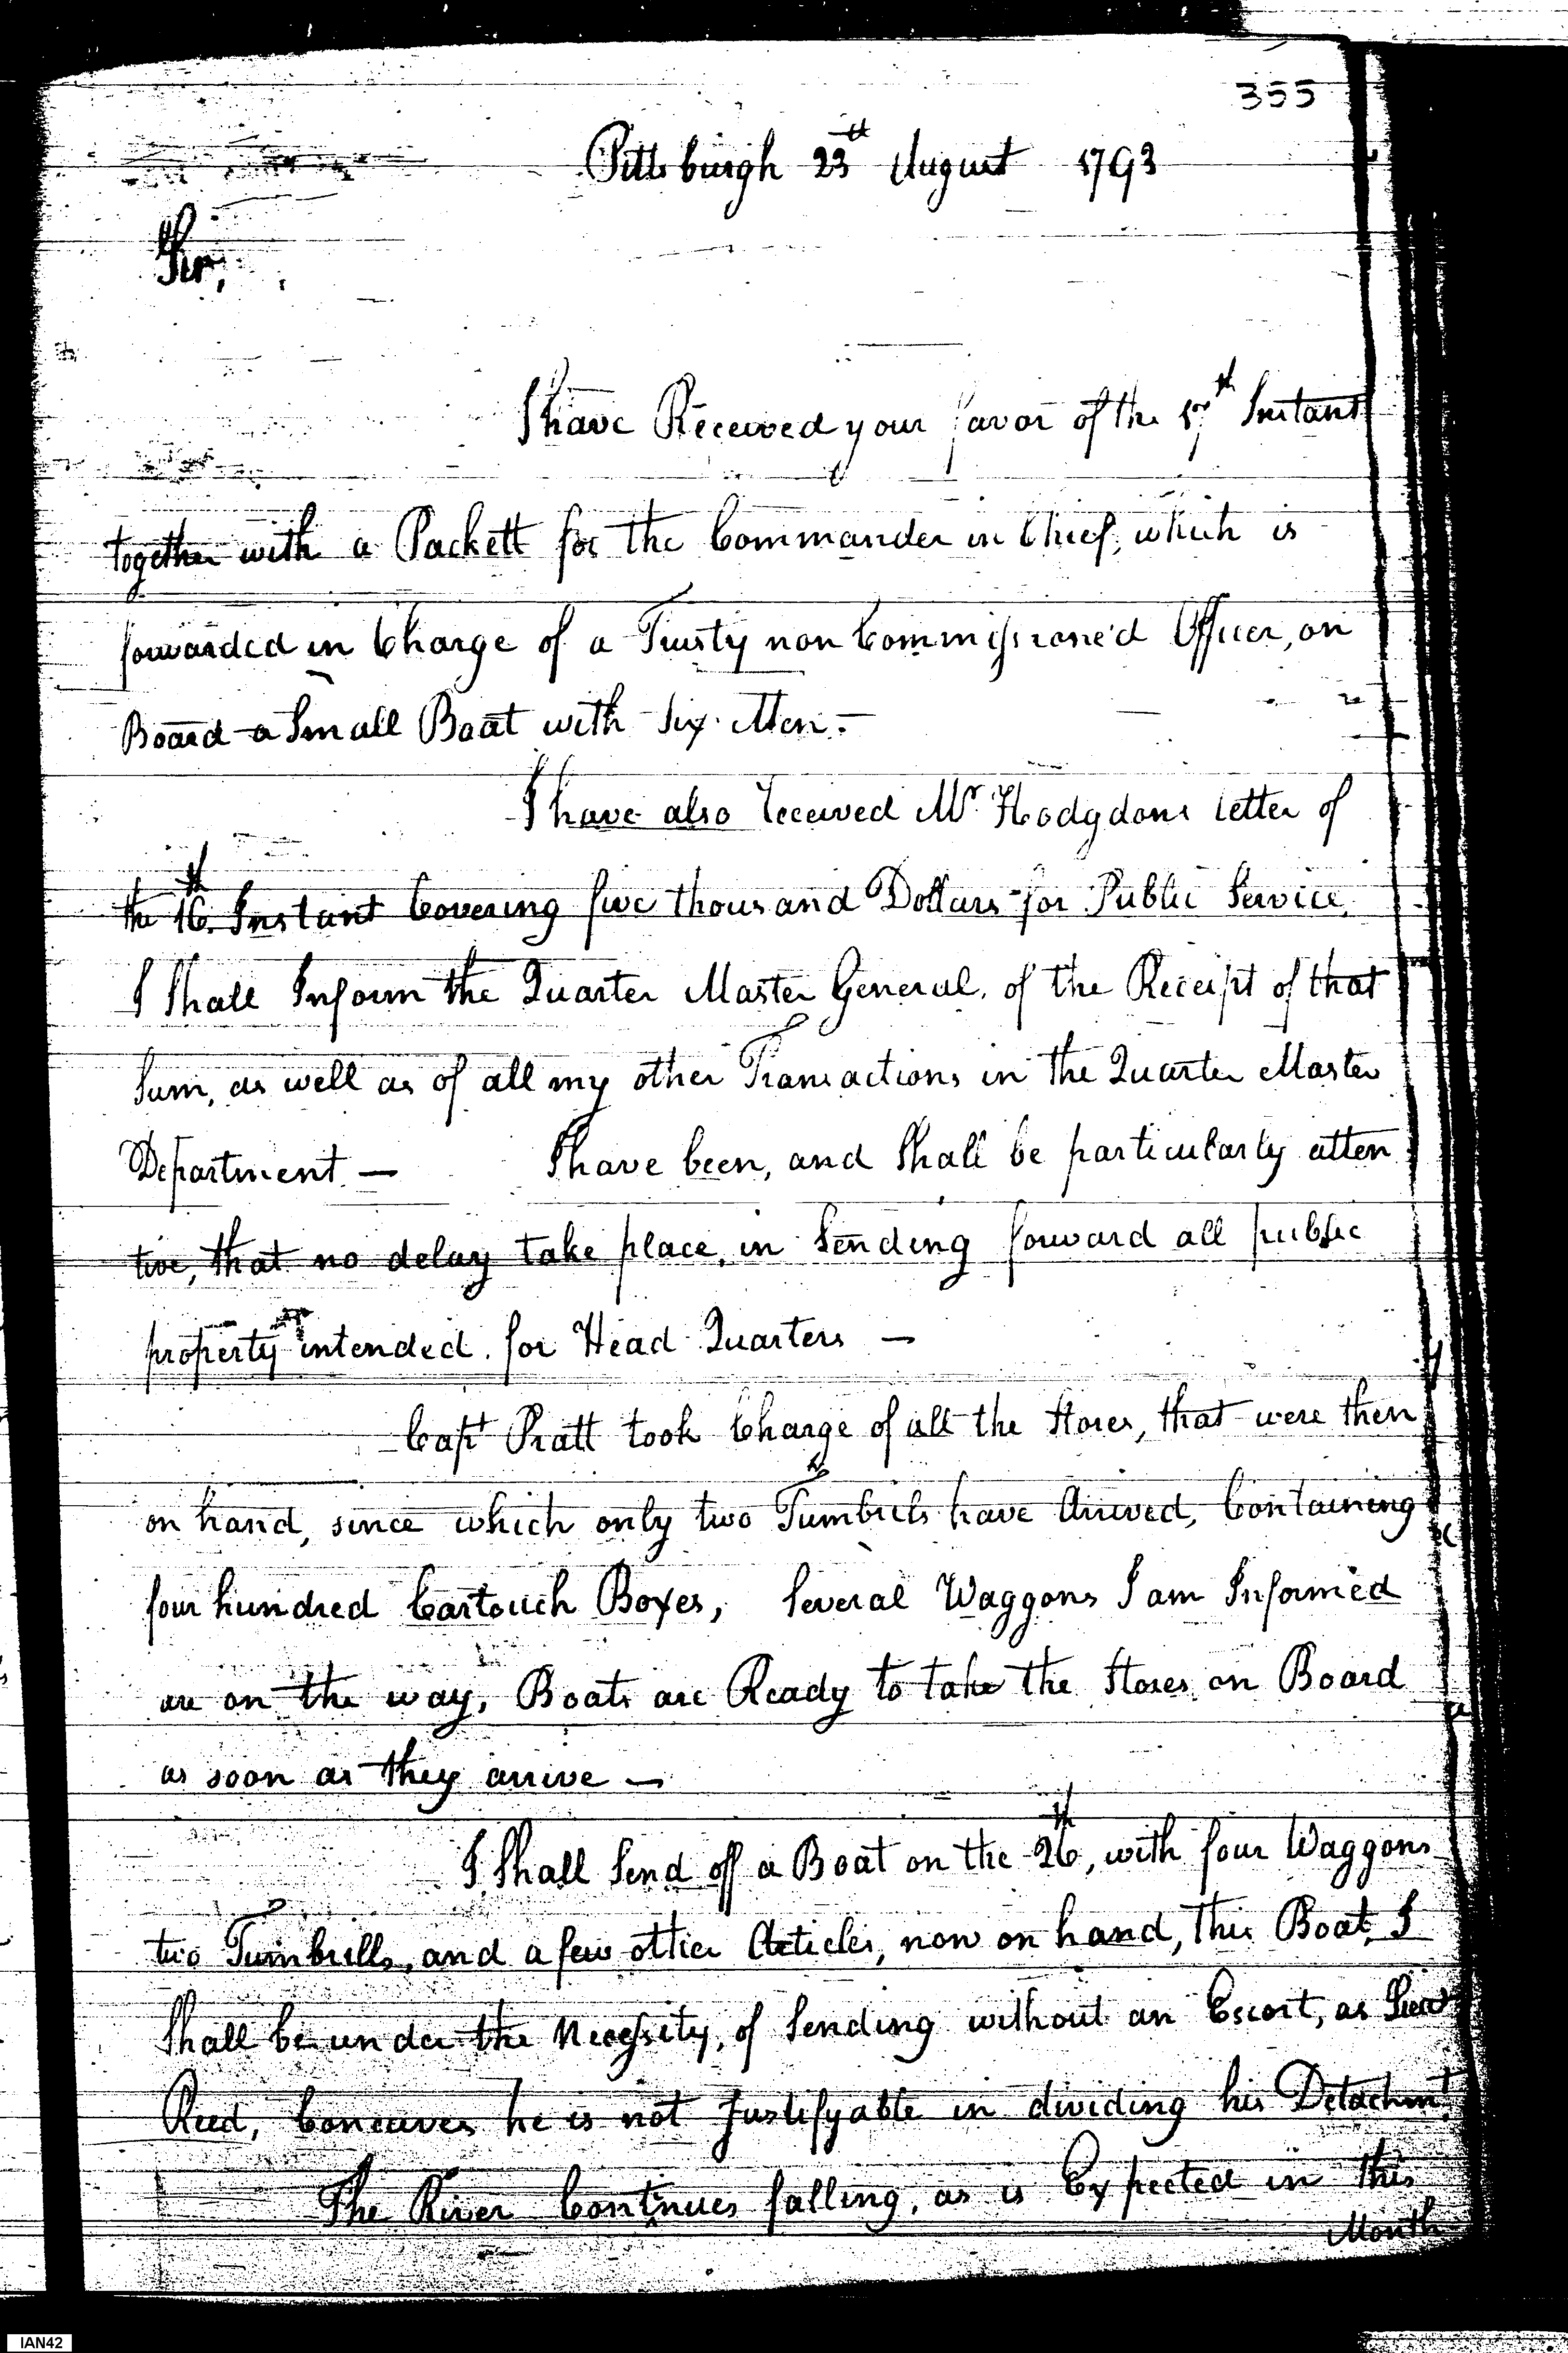 355
Pittsburgh 23th August 1793
Sir,
I have Received your favor of the 17th Instant
together with a Packett for the Commander in Chief, which is
forwarded in Charge of a Trusty non Commissione'd Officer, on
Board a Small Boat with Six Men. -
I have also received Mr Hodgdons letter of
the 16th Instant Covering five thousand Dollars for Public Service,
I Shall Inform the Quarter Master General, of the Receipt of that
Sum, as well as of all my other Transactions in the Quarter Master
Department — I have been, and Shall be particularly atten
tive, that no delay take place, in Sending forward all public
property intended for Head Quarters —
Capt Pratt took Charge of all the Stores, that were then
on hand, since which only two Tumbrils have Arrived, Containing
four hundred Cartouch Boxes, Several Waggons I am Informed
are on the way, Boats are Ready to take the Stores on Board
as soon as they arrive —
I Shall Send off a Boat on the 26th, with four Waggons
two Tumbrills, and a few other Articles, now on hand, this Boat, I
Shall be under the Necessity, of Sending without an Escort, as Lieut
Reed, Conceives he is not Justifyable in dividing his Detachmt.
The River Continues falling, as is Expected in this
Month
IAN42